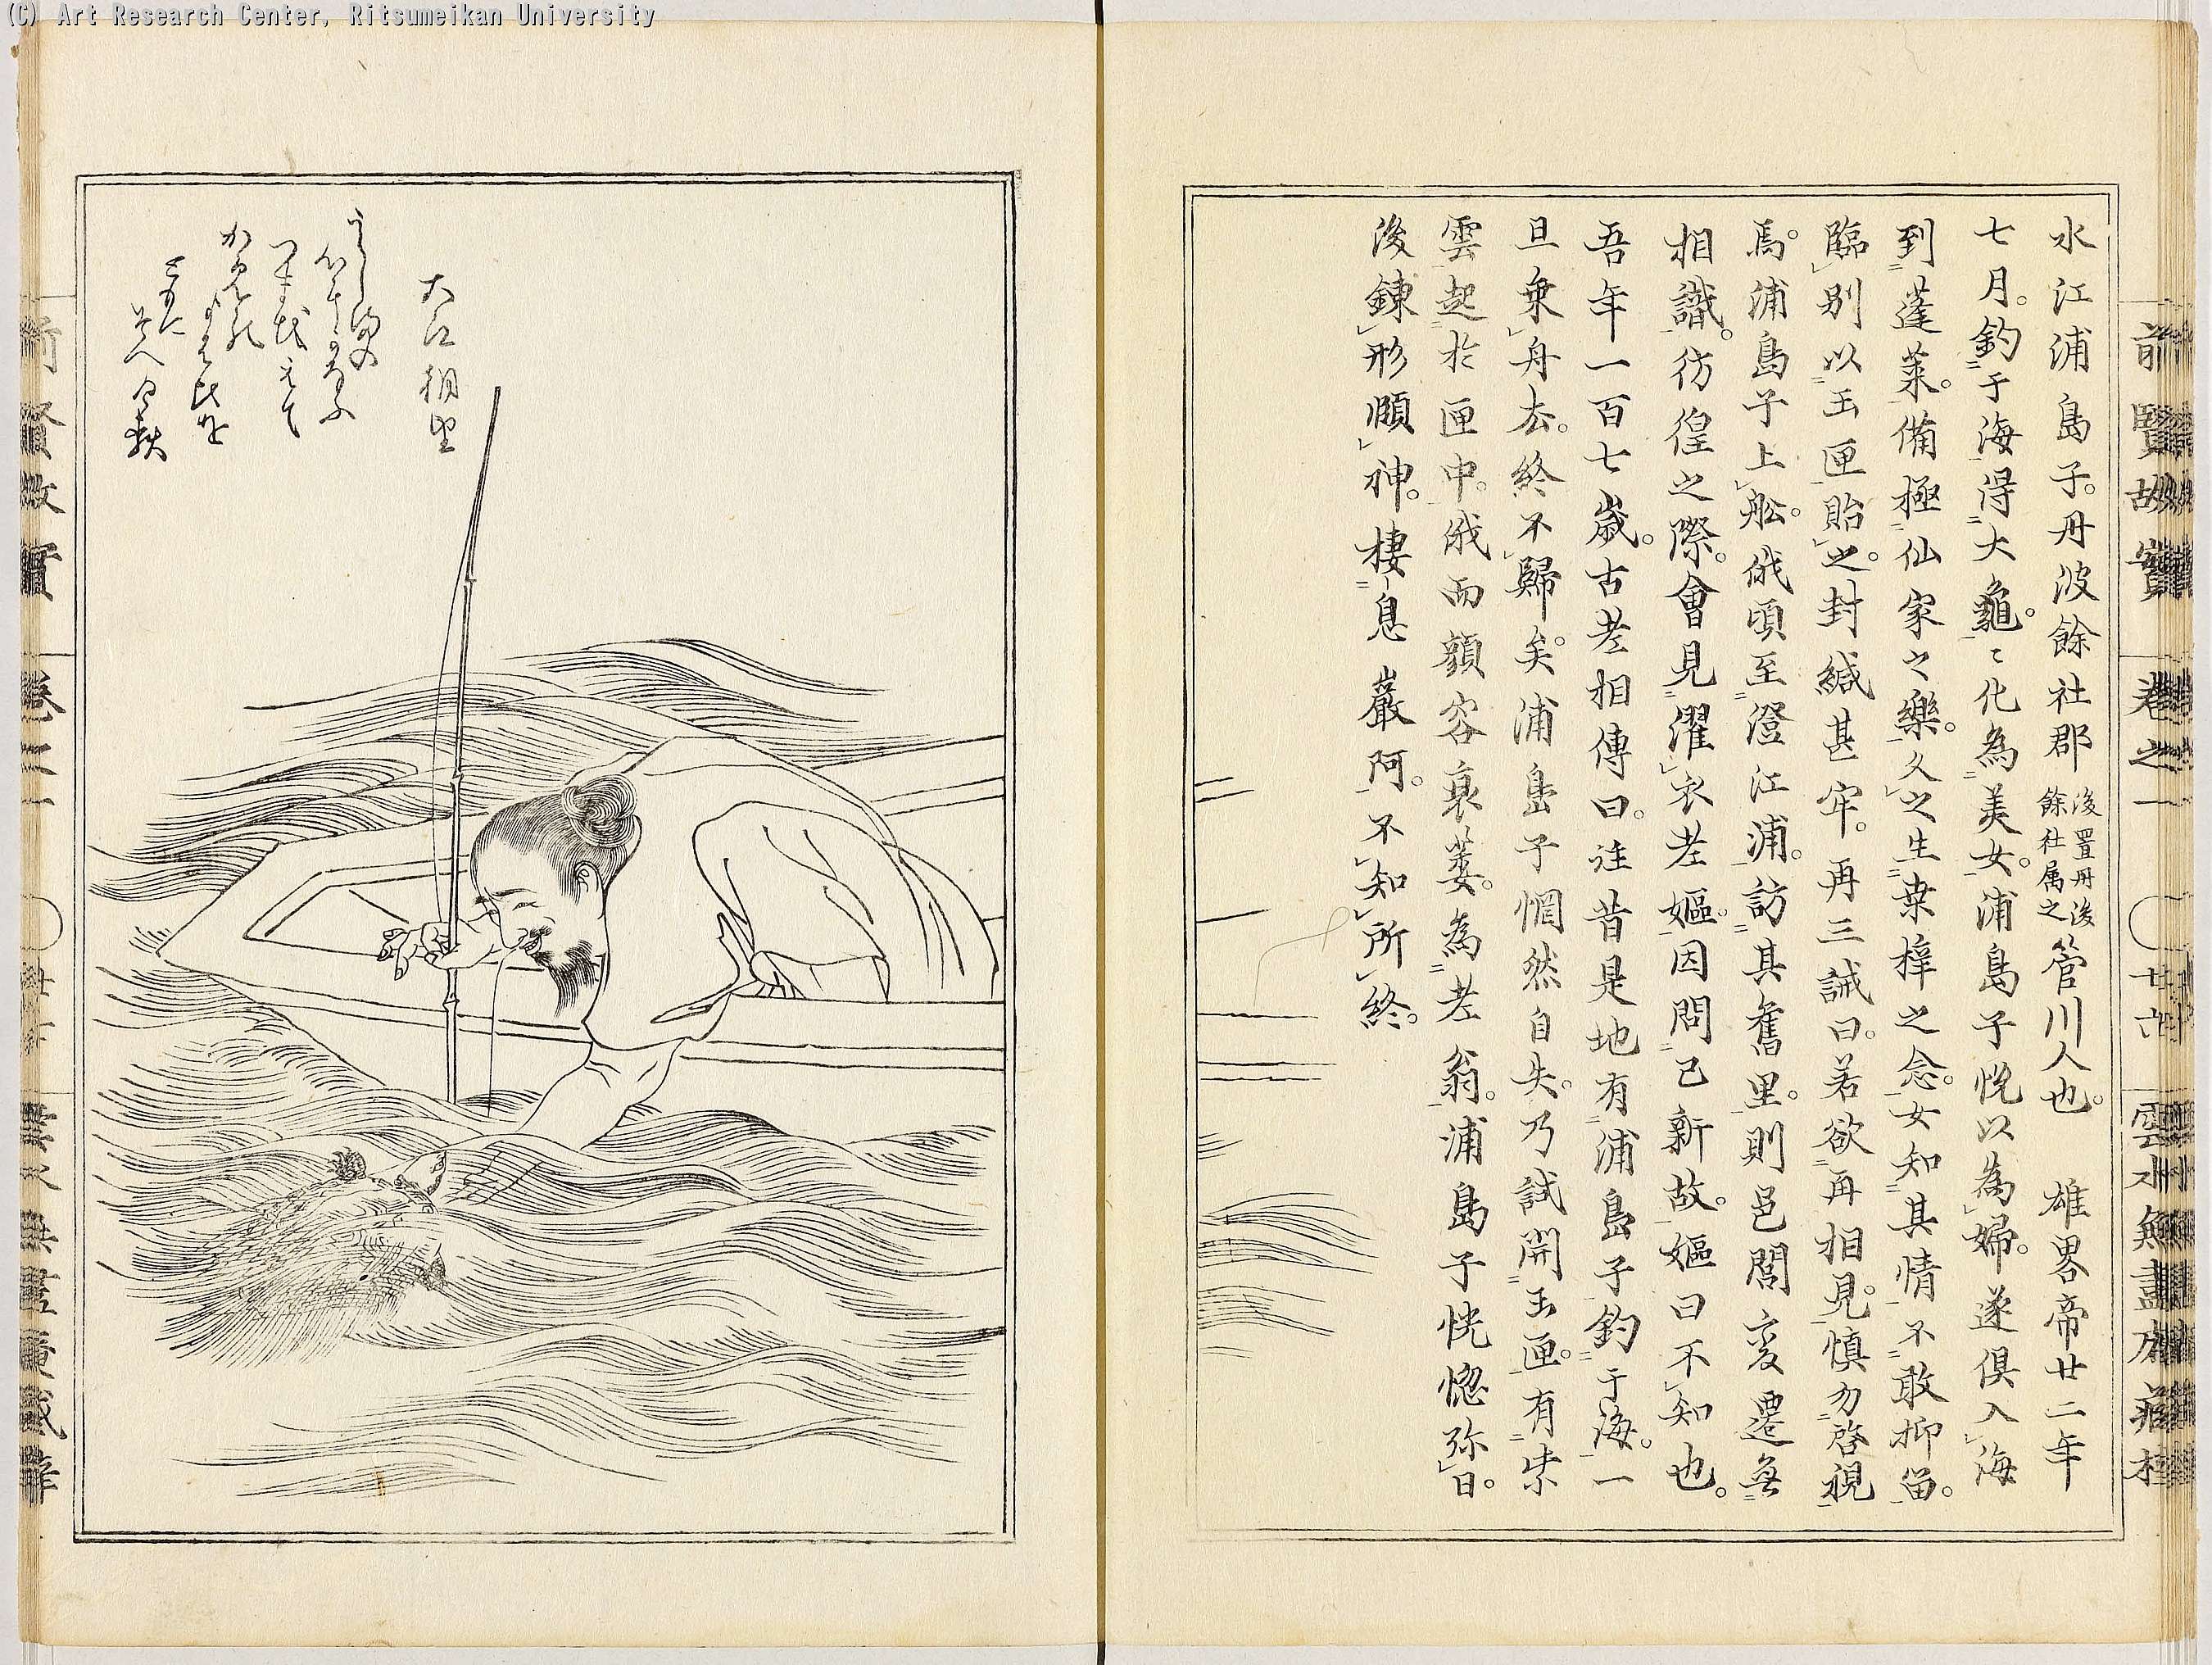 (C) Art Research Center, Ritsumeikan University
前賢故實 卷之一 廿六 雲水無盡庵藏梓
水江浦島子。丹波餘社郡後置丹後餘社属之管川人也。 雄畧帝廿二年
七月。釣于海得大龜。〻化為美女。浦島子恱以為婦。遂俱入海
到蓬萊。備極仙家之樂。久之生桒梓之念。女知其情不敢抑畄。
臨別以玉匣貽之。封緘甚牢。再三誡曰。若欲再相見。慎勿啓視
焉。浦島子上舩。俄頃至澄江浦。訪其舊里。則邑閭変遷無
相識。彷徨之際。會見濯衣老嫗。因問己新故。嫗曰不知也。
吾年一百七歳。古老相傳曰。往昔是地有浦島子釣于海。一
旦乗舟去。終不歸矣。浦島子惘然自失。乃試開玉匣。有紫
雲起於匣中。俄而顔容衰萎。為老翁。浦島子恍惚弥日。
後錬形頤神。棲息巖阿。不知所終。
大江朝望